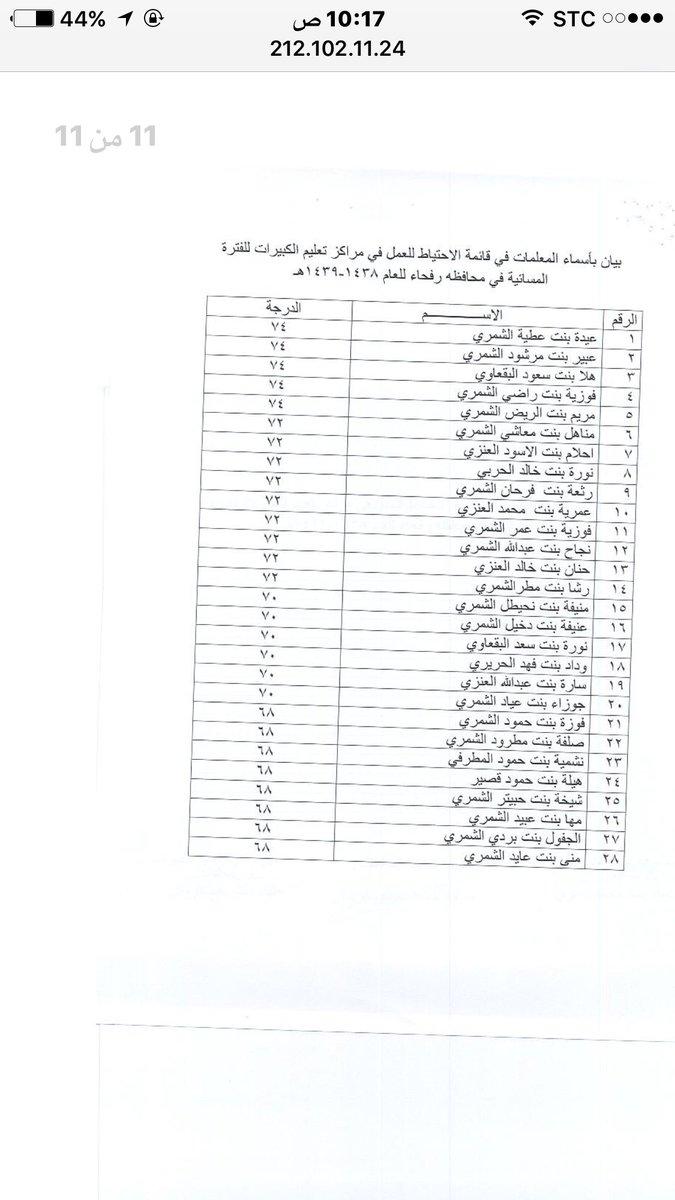 44% 10:17 ص STC
212.102.11.24
11 من 11
بيان بأسماء المعلمات في قائمة الاحتياط للعمل في مراكز تعليم الكبيرات للفترة
المسائية في محافظه رفحاء للعام ١٤٣٨-١٤٣٩هـ
الرقم الاســـــــــم الدرجة
١ عيدة بنت عطية الشمري ٧٤
٢ عبير بنت مرشود الشمري ٧٤
٣ هلا بنت سعود البقعاوي ٧٤
٤ فوزية بنت راضي الشمري ٧٤
٥ مريم بنت الريض الشمري ٧٤
٦ مناهل بنت معاشي الشمري ٧٢
٧ احلام بنت الاسود العنزي ٧٢
٨ نورة بنت خالد الحربي ٧٢
٩ رثعة بنت فرحان الشمري ٧٢
١٠ عمرية بنت محمد العنزي ٧٢
١١ فوزية بنت عمر الشمري ٧٢
١٢ نجاح بنت عبدالله الشمري ٧٢
١٣ حنان بنت خالد العنزي ٧٢
١٤ رشا بنت مطرالشمري ٧٢
١٥ منيفة بنت نحيطل الشمري ٧٠
١٦ عنيفة بنت دخيل الشمري ٧٠
١٧ نورة بنت سعد البقعاوي ٧٠
١٨ وداد بنت فهد الحريري ٧٠
١٩ سارة بنت عبدالله العنزي ٧٠
٢٠ جوزاء بنت عياد الشمري ٧٠
٢١ فوزة بنت حمود الشمري ٦٨
٢٢ صلفة بنت مطرود الشمري ٦٨
٢٣ نشمية بنت حمود المطرفي ٦٨
٢٤ هيلة بنت حمود قصير ٦٨
٢٥ شيخة بنت حبيتر الشمري ٦٨
٢٦ مها بنت عبيد الشمري ٦٨
٢٧ الجفول بنت بردي الشمري ٦٨
٢٨ منى بنت عايد الشمري ٦٨